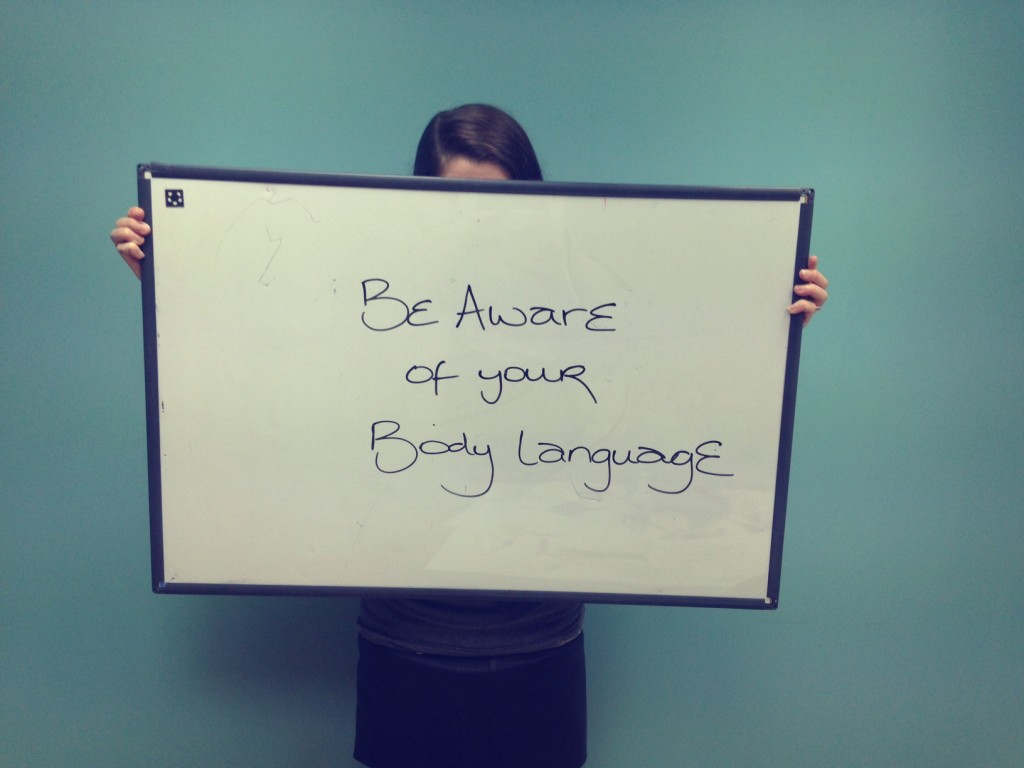 Be Aware
of your
Body Language